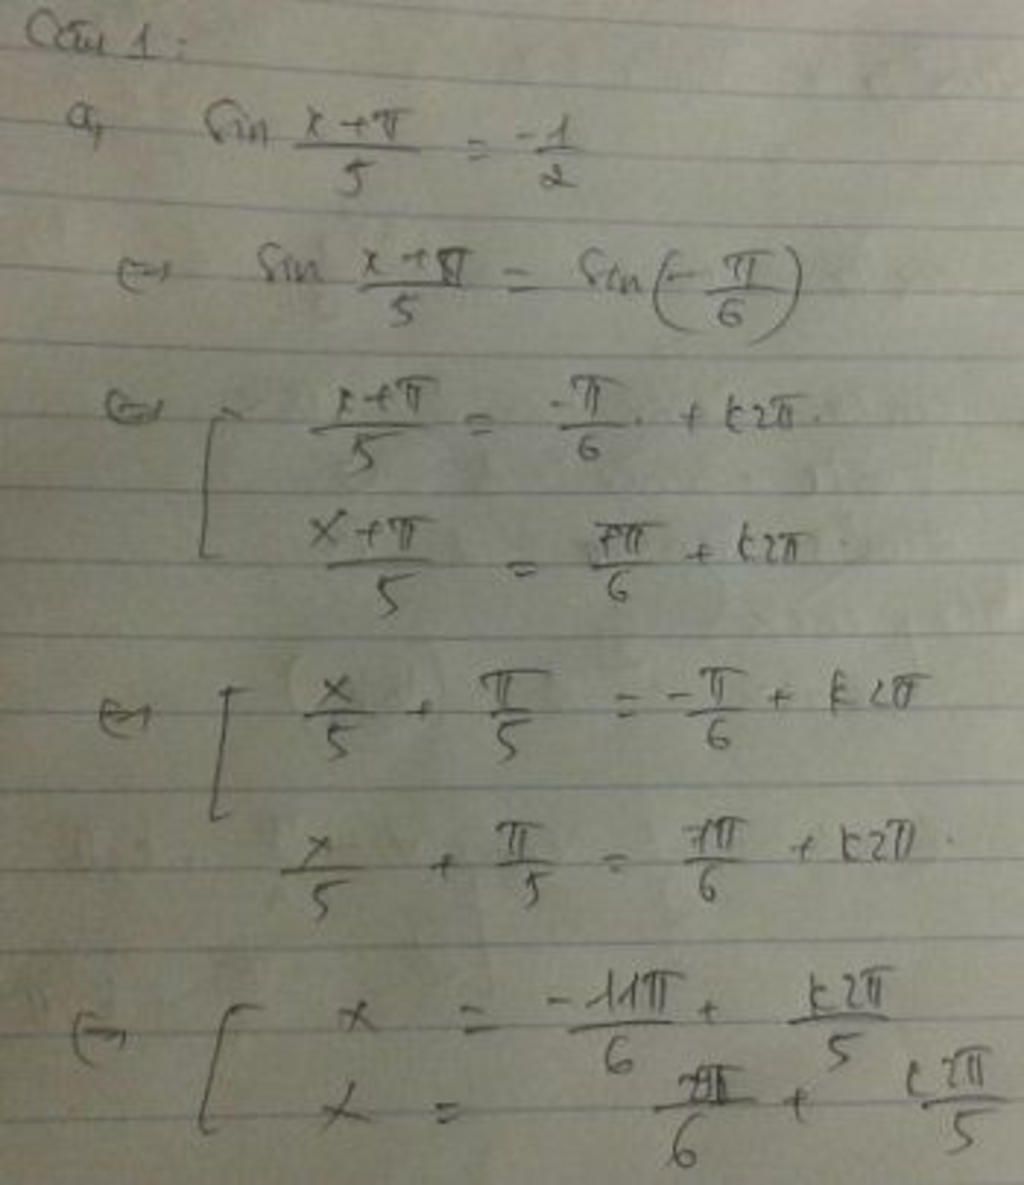 Câu 1:
a, sin (x+π)/5 = -1/2
⇔ sin (x+π)/5 = sin(-π/6)
⇔ [ (x+π)/5 = -π/6 + k2π.
(x+π)/5 = 7π/6 + k2π.
⇔ [ x/5 + π/5 = -π/6 + k2π
x/5 + π/5 = 7π/6 + k2π.
⇔ [ x = -11π/6 + k2π/5
x = /6 + k2π/5